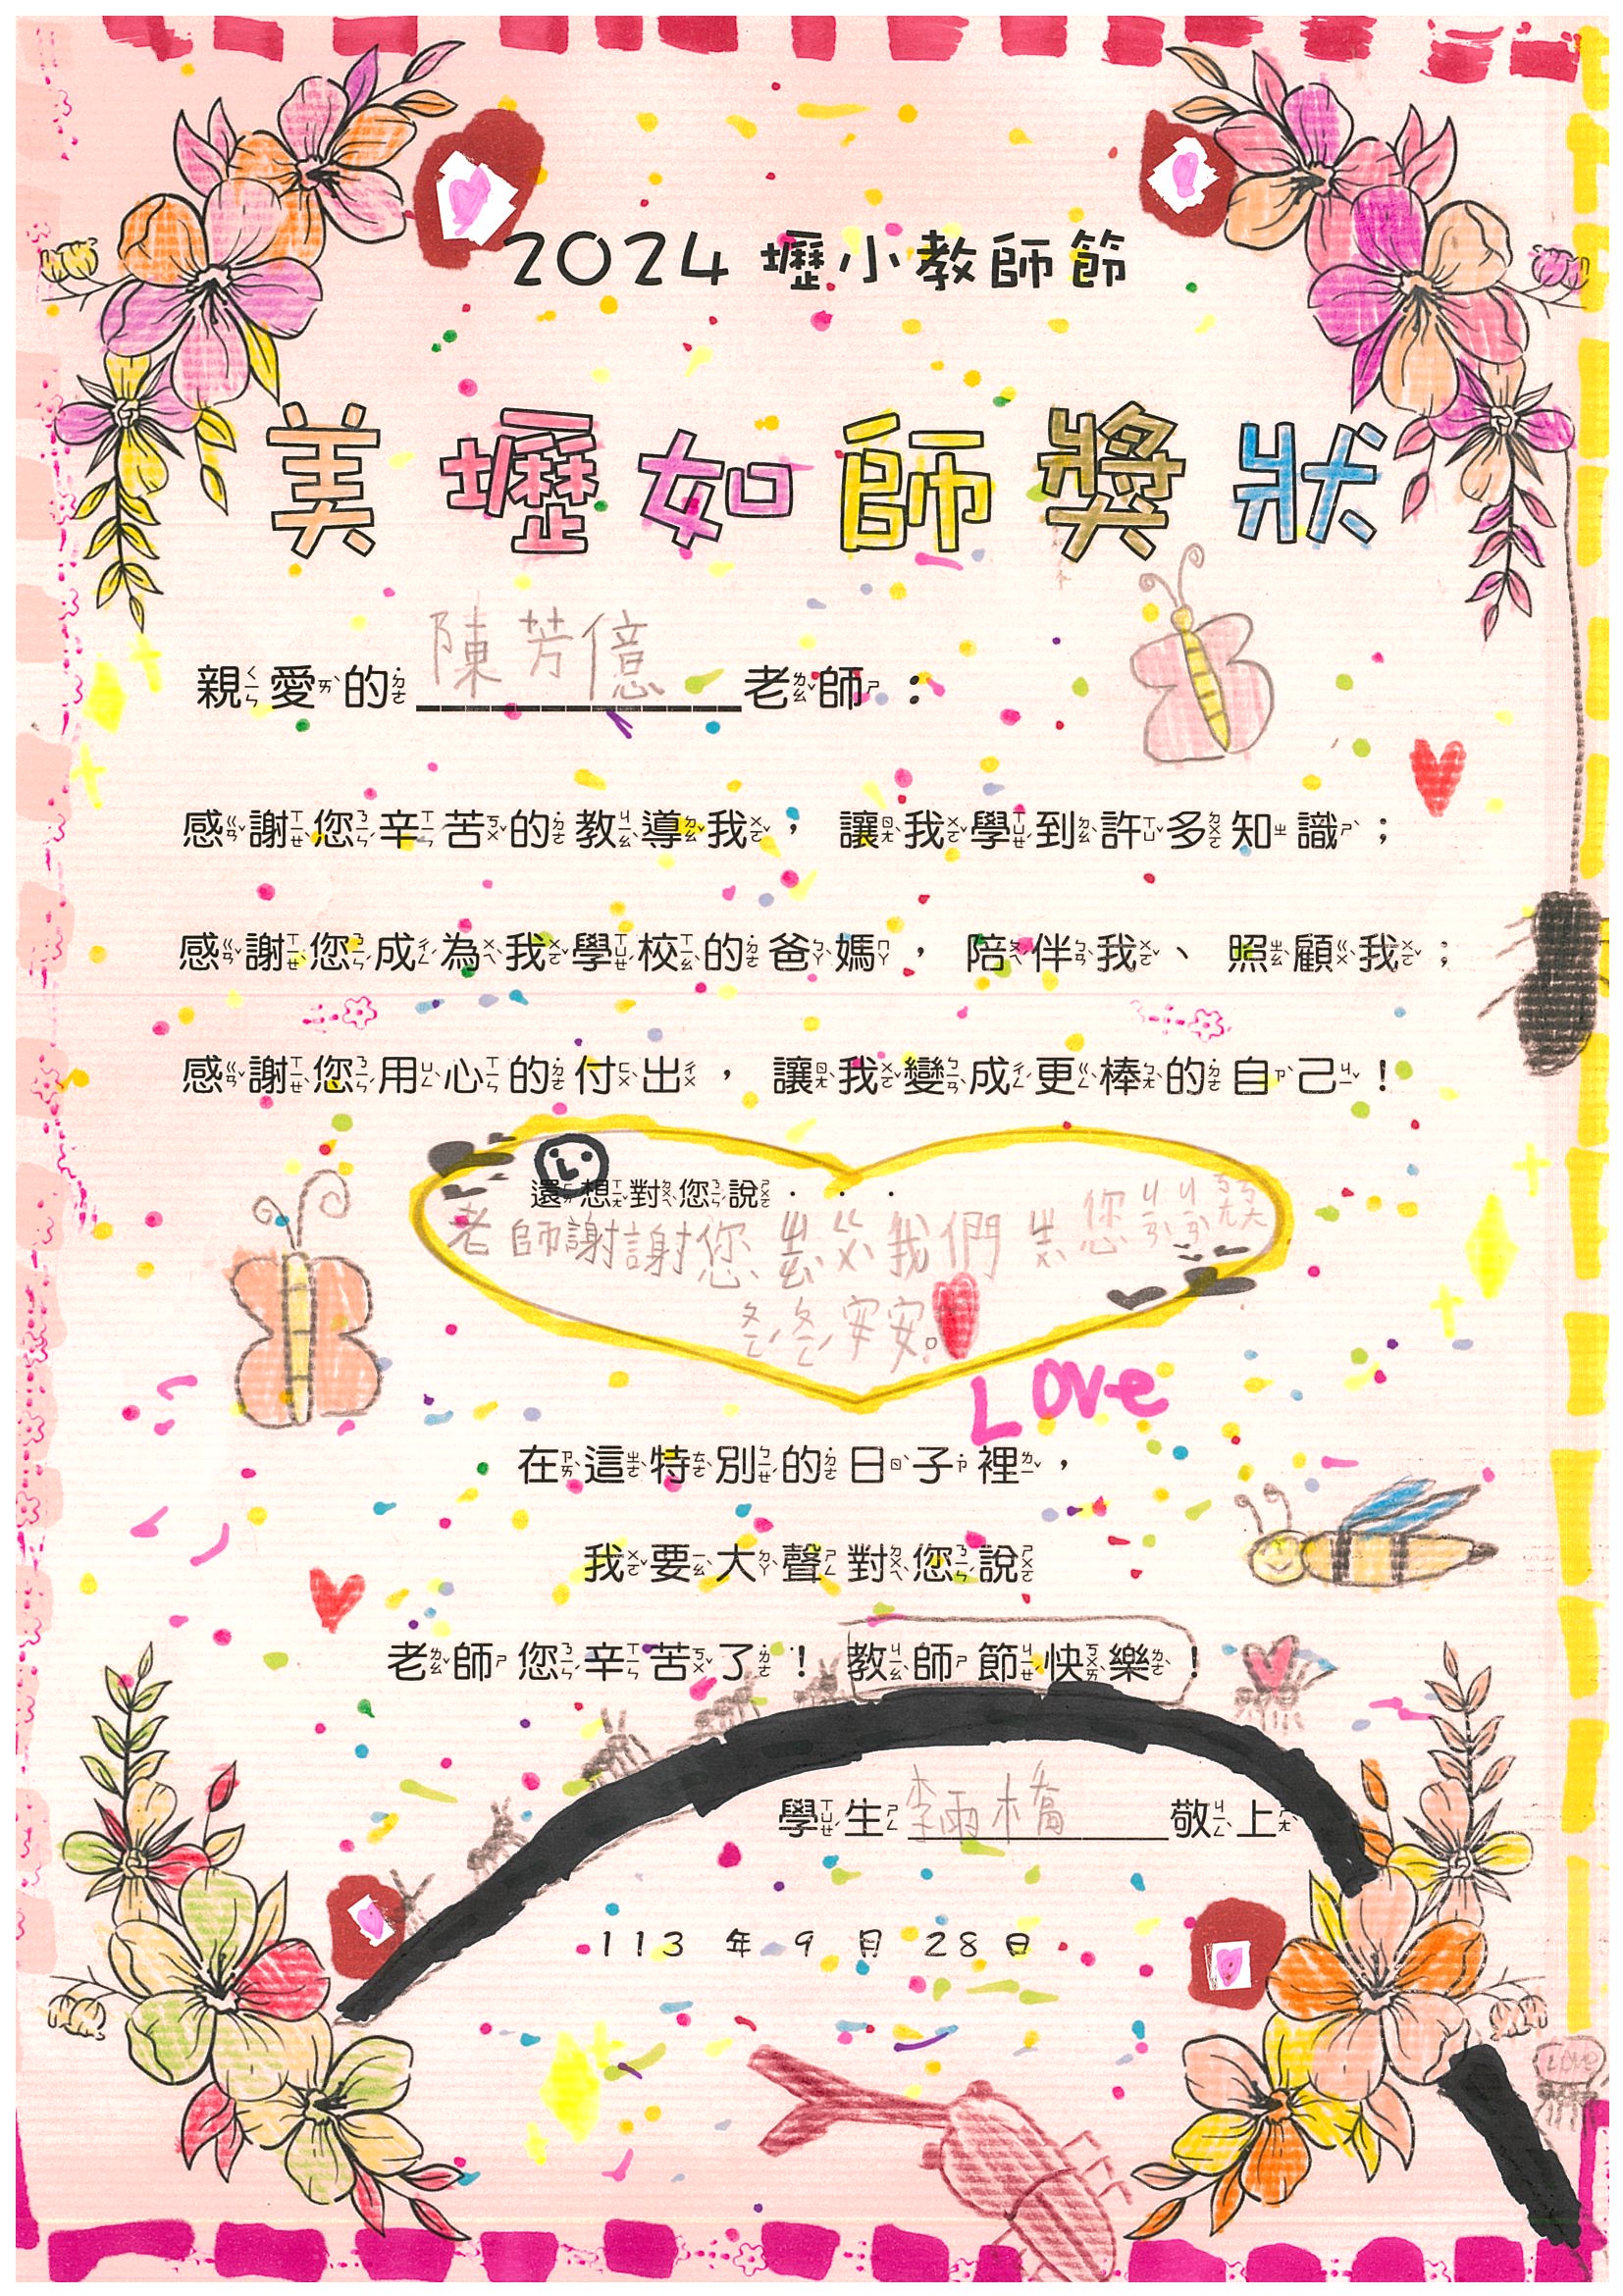 2024 壢小教師節
美壢如師獎狀
親愛的 陳芳億 老師：
感謝您辛苦的教導我，讓我學到許多知識；
感謝您成為我學校的爸媽，陪伴我、照顧我；
感謝您用心的付出，讓我變成更棒的自己！
還想對您說．．．
老師謝謝您 ㄓㄠˋㄍㄨˋ我們 ㄓㄨˋ您 ㄐㄧㄢˋㄐㄧㄢˋㄎㄤㄎㄤ
ㄆㄧㄥˊㄆㄧㄥˊ安安。
Love
在這特別的日子裡，
我要大聲對您說
老師您辛苦了！教師節快樂！
學生 李雨橋 敬上
113 年 9 月 28 日
LOVE